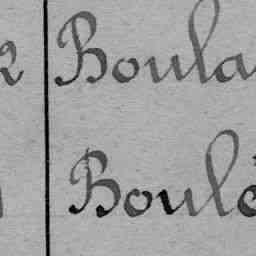 2 Boula
Boulé